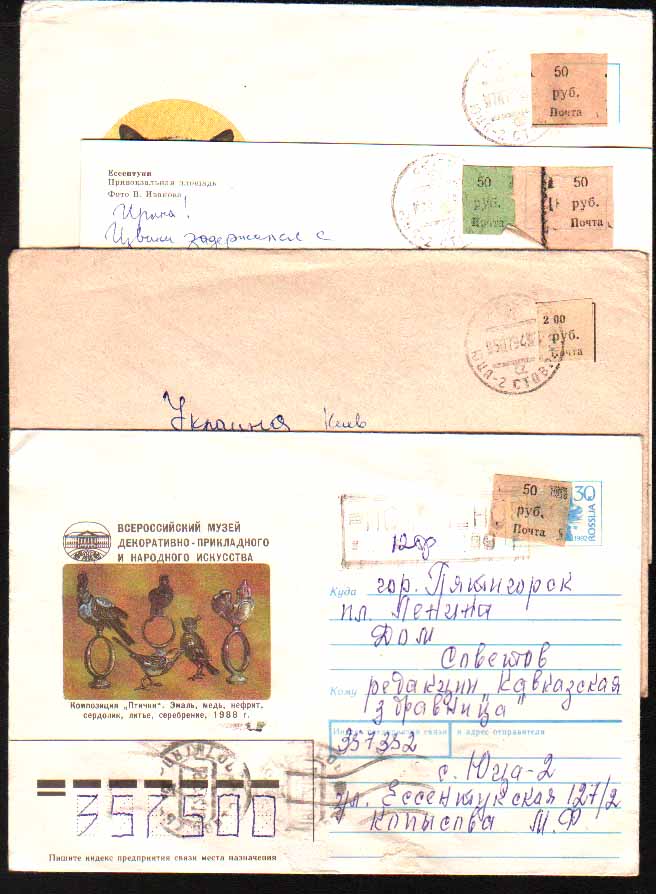 50
руб.
Почта
Ессентуки
Привокзальная площадь
Фото В. Иванова
Ирина!
Извини задержался с
50
руб.
Почта
50
руб.
Почта
2 00
руб.
Почта
ЮЦА-2 СТАВ.
Украина Киев
50
руб.
Почта
30
ROSSIJA
1992
ВСЕРОССИЙСКИЙ МУЗЕЙ
ДЕКОРАТИВНО-ПРИКЛАДНОГО
И НАРОДНОГО ИСКУССТВА
Композиция „Птички“. Эмаль, медь, нефрит,
сердолик, литье, серебрение, 1988 г.
Куда гор. Пятигорск
пл. Ленина
Дом
Советов
Кому редакции "Кавказская
здравница"
Индекс предприятия связи и адрес отправителя
357352
с. Юца-2
ул. Ессентукская 127/2
Копысова М.Ф
357500
Пишите индекс предприятия связи места назначения